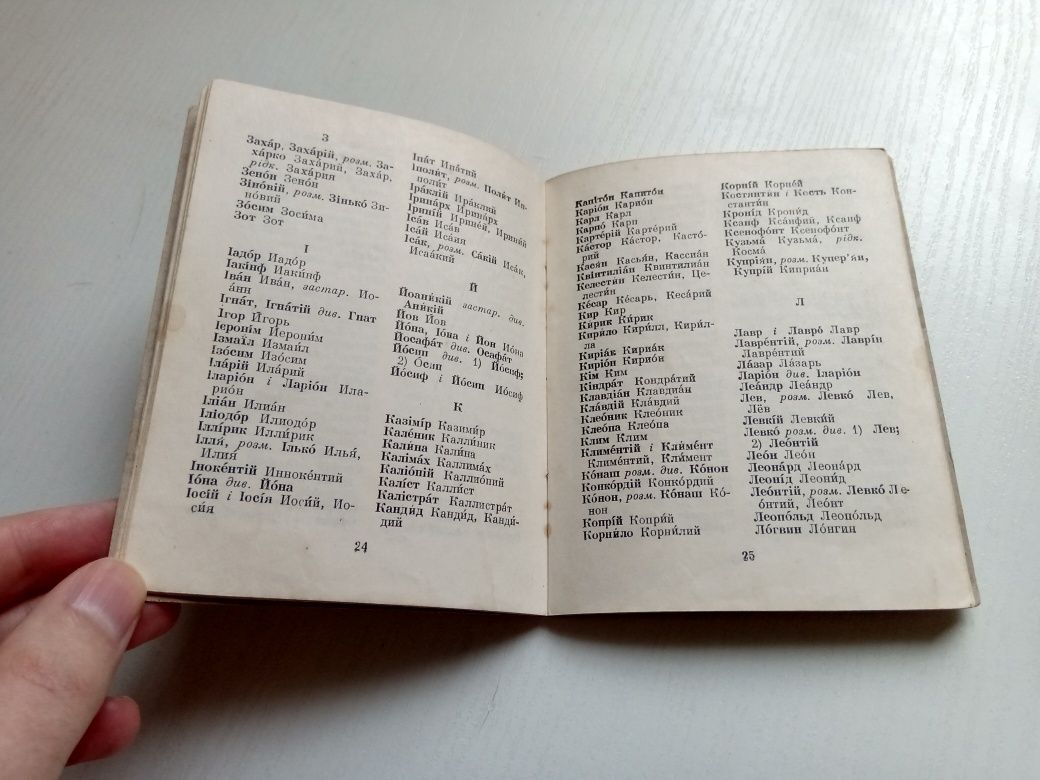 З
Заха́р, Заха́рій, розм. За-
ха́рко Заха́рий, Заха́р,
рідк. Заха́рия
Зено́н Зено́н
Зіно́вій, розм. Зінько́ Зи-
но́вий
Зо́сим Зоси́ма
Зот Зот
І
Іадо́р Иадо́р
Іакі́нф Иаки́нф
Іва́н Ива́н, застар. Ио-
а́нн
Ігна́т, Ігна́тій див. Гнат
І́гор И́горь
Ієроні́м Иерони́м
Ізмаї́л Измаи́л
Ізо́сим Изо́сим
Іла́рій Ила́рий
Іларіо́н і Ларіо́н Ила-
рио́н
Іліа́н Илиа́н
Іліодо́р Илиодо́р
Іллі́рик Илли́рик
Ілля́, розм. Ілько́ Илья́,
Илия́
Іноке́нтій Инноке́нтий
Іо́на див. Йо́на
Іосі́й і Іосі́я Иоси́й, Ио-
си́я
Іпа́т Ипа́тий
Іполи́т, розм. Поли́т Ип-
поли́т
Іра́клій Ира́клий
Іри́нарх Ирина́рх
Ірині́й Ирине́й, Ирини́й
Іса́в Иса́в
Іса́й Иса́ия
Іса́к, розм. Са́кій Иса́к,
Исаа́кий
Й
Йоани́кій застар. див.
Ани́кій
Йов Йов
Йо́на, Іо́на і Йон Ио́на
Йосафа́т див. Осафа́т
Йо́сип див. 1) Йо́сиф;
2) О́сип
Йо́сиф і Йо́сип Ио́сиф
К
Казимі́р Казими́р
Кале́ник Калли́ник
Кали́на Кали́на
Калі́мах Каллима́х
Каліо́ній Каллио́ний
Калі́ст Калли́ст
Калістра́т Каллистра́т
Канди́д Канди́д, Канди́-
дий
24
Капіто́н Капито́н
Каріо́н Карио́н
Карл Карл
Карпо́ Карп
Карте́рій Карте́рий
Ка́стор Ка́стор, Касто́-
рий
Кася́н Касья́н, Кассиа́н
Квінтиліа́н Квинтилиа́н
Келести́н Келести́н, Це-
лести́н
Ке́сар Ке́сарь, Кеса́рий
Кир Кир
Ки́рик Ки́рик
Кири́ло Кири́лл, Кири́л-
ла
Киріа́к Кириа́к
Киріо́н Кирио́н
Кім Ким
Кі́ндрат Кондра́тий
Клавдіа́н Клавдиа́н
Кла́вдій Кла́вдий
Клео́ник Клео́ник
Клео́па Клео́па
Клим Клим
Климе́нтій і Кли́мент
Климе́нтий, Кли́мент
Ко́наш розм. див. Ко́нон
Конко́рдій Конко́рдий
Ко́нон, розм. Ко́наш Ко́-
нон
Копрі́й Копри́й
Корни́ло Корни́лий
Корні́й Корне́й
Костянти́н і Кость Кон-
станти́н
Кроні́д Крони́д
Ксанф Кса́нфий, Ксанф
Ксенофо́нт Ксенофо́нт
Кузьма́ Кузьма́, рідк.
Косма́
Купрія́н, розм. Купер'я́н,
Купрі́й Киприа́н
Л
Лавр і Лавро́ Лавр
Лавре́нтій, розм. Лаврі́н
Лавре́нтий
Ла́зар Ла́зарь
Ларіо́н див. Іларіо́н
Леа́ндр Леа́ндр
Лев, розм. Левко́ Лев,
Лёв
Левкі́й Левки́й
Левко́ розм. див. 1) Лев;
2) Лео́нтій
Лео́н Лео́н
Леона́рд Леона́рд
Леоні́д Леони́д
Лео́нтій, розм. Левко́ Ле-
о́нтий, Лео́нт
Леопо́льд Леопо́льд
Ло́гвин Ло́нгин
25